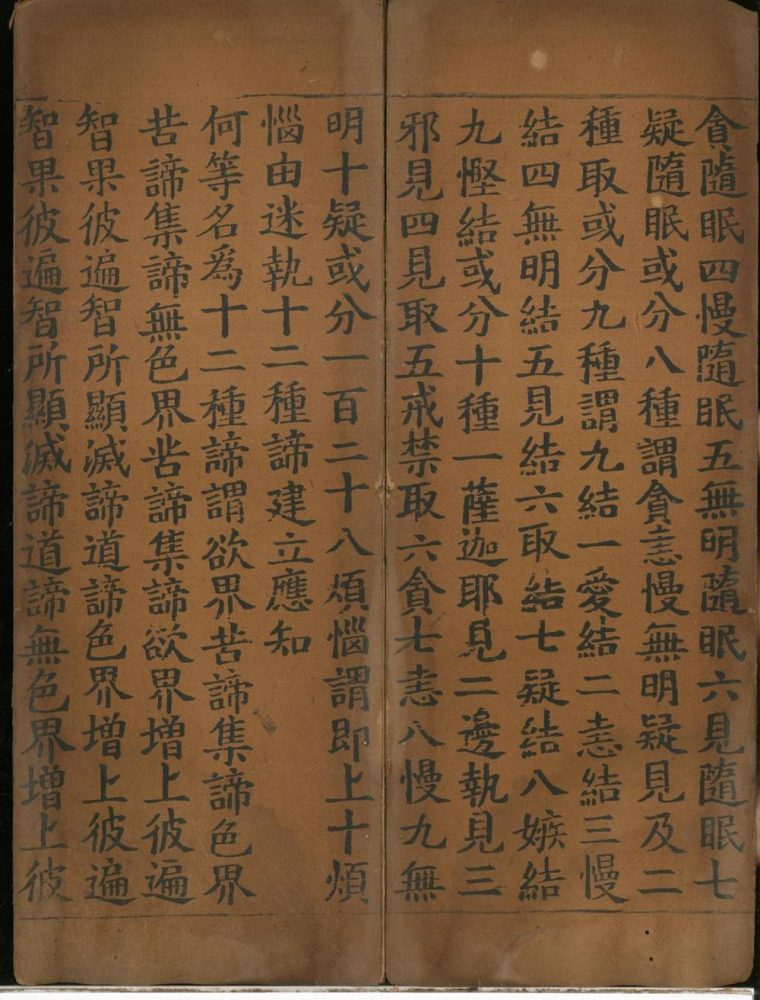 貪隨眠四慢隨眠五無明隨眠六見隨眠七
疑隨眠或分八種謂貪恚慢無明疑見及二
種取或分九種謂九結一愛結二恚結三慢
結四無明結五見結六取結七疑結八嫉結
九慳結或分十種一薩迦耶見二邊執見三
邪見四見取五戒禁取六貪七恚八慢九無
明十疑或分一百二十八煩惱謂即上十煩
惱由迷執十二種諦建立應知
何等名為十二種諦謂欲界苦諦集諦色界
苦諦集諦無色界苦諦集諦欲界增上彼遍
智果彼遍智所顯滅諦道諦色界增上彼遍
智果彼遍智所顯滅諦道諦無色界增上彼